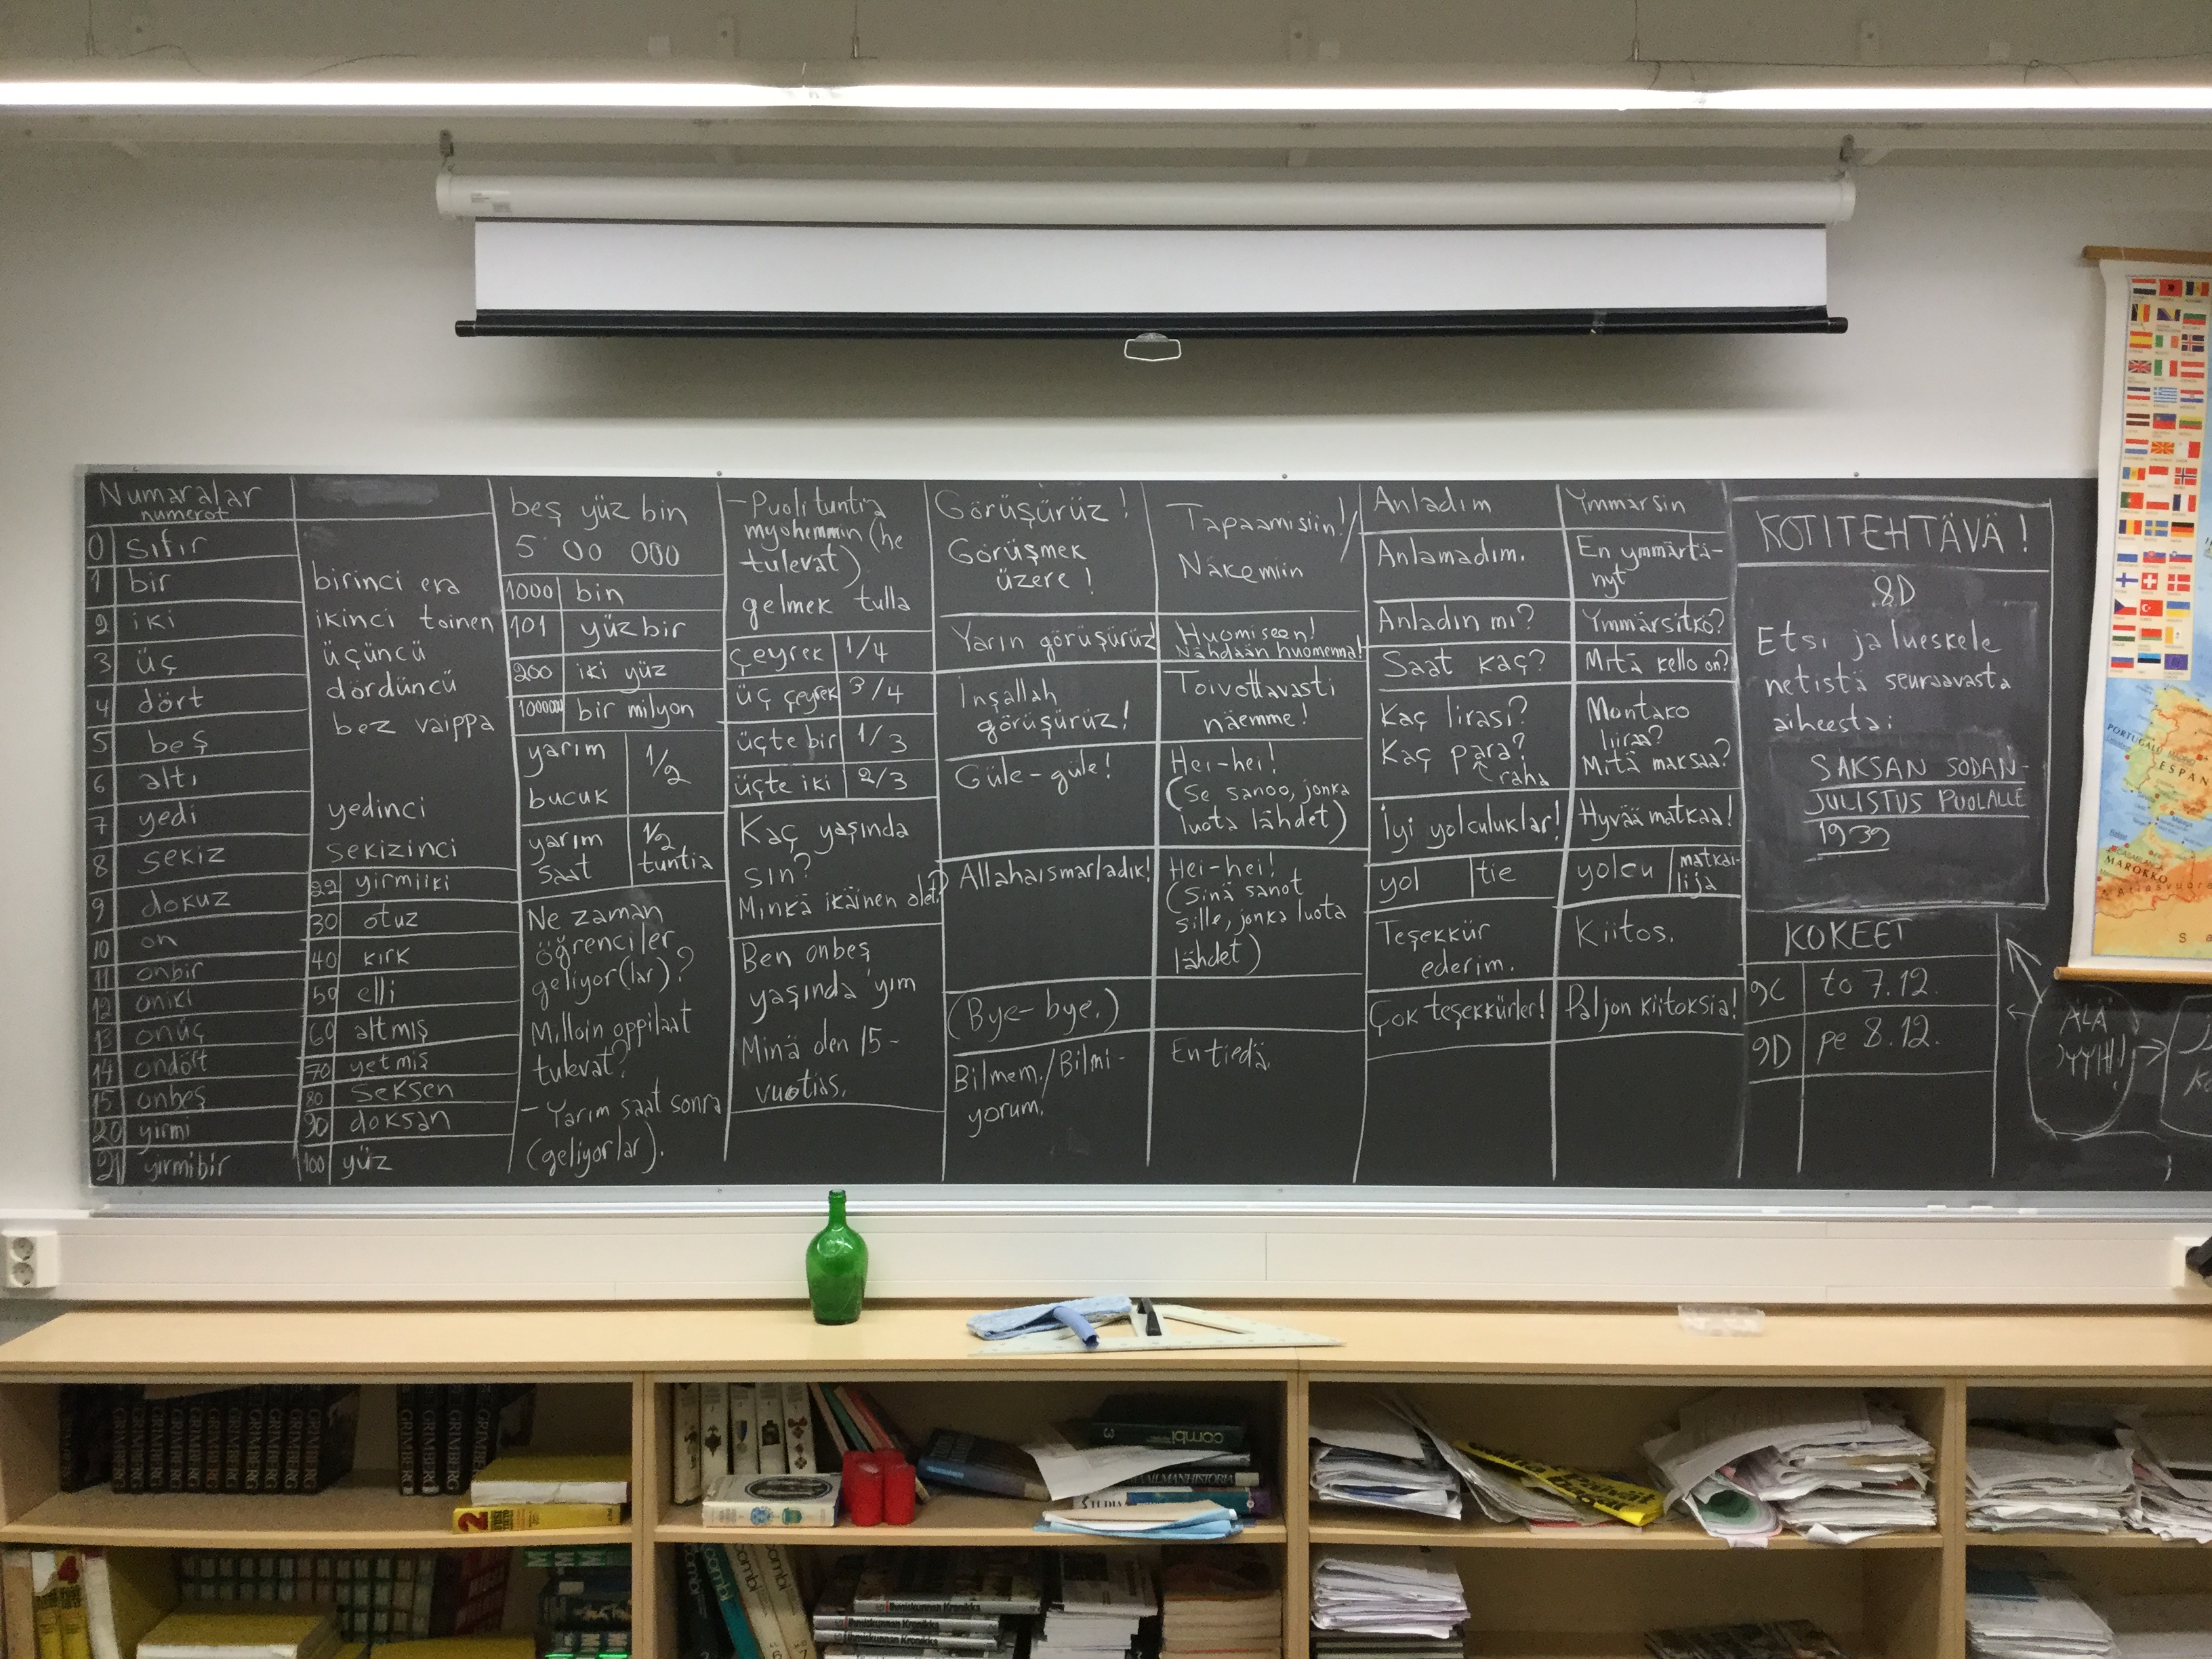 Numaralar
numerot
0 sıfır
1 bir
2 iki
3 üç
4 dört
5 beş
6 altı
7 yedi
8 sekiz
9 dokuz
10 on
11 onbir
12 oniki
13 onüç
14 ondört
15 onbeş
20 yirmi
21 yirmibir
birinci era
ikinci toinen
üçüncü
dördüncü
bez vaippa
yedinci
sekizinci
22 yirmiiki
30 otuz
40 kırk
50 elli
60 altmış
70 yetmiş
80 seksen
90 doksan
100 yüz
beş yüz bin
5 00 000
1000 bin
101 yüz bir
200 iki yüz
1000000 bir milyon
yarım 1/2
bucuk
yarım 1/2
saat tuntia
Ne zaman
öğrenciler
geliyor(lar)?
Milloin oppilaat
tulevat?
- Yarım saat sonra
(geliyorlar).
- Puoli tuntia
myöhemmin (he
tulevat)
gelmek tulla
çeyrek 1/4
üç çeyrek 3/4
üçte bir 1/3
üçte iki 2/3
Kaç yaşında
sın?
Minkä ikäinen olet?
Ben onbeş
yaşında'yım
Minä olen 15-
vuotias.
Görüşürüz!
Görüşmek
üzere!
Yarın görüşürüz
İnşallah
görüşürüz!
Güle-güle!
Allahaısmarladık!
(Bye-bye.)
Bilmem./Bilmi-
yorum.
Tapaamisiin!/
Näkemiin
Huomiseen!
Nähdään huomenna!
Toivottavasti
näemme!
Hei-hei!
(Se sanoo, jonka
luota lähdet)
Hei-hei!
(Sinä sanot
sille, jonka luota
lähdet)
En tiedä.
Anladım
Anlamadım.
Anladın mı?
Saat kaç?
Kaç lirası?
Kaç para?
raha
İyi yolculuklar!
yol tie
Teşekkür
ederim.
Çok teşekkürler!
Ymmärsin
En ymmärtä-
nyt
Ymmärsitkö?
Mitä kello on?
Montako
liiraa?
Mitä maksaa?
Hyvää matkaa!
yolcu matkai-
lija
Kiitos.
Paljon kiitoksia!
KOTITEHTÄVÄ!
8D
Etsi ja lueskele
netistä seuraavasta
aiheesta:
SAKSAN SODAN-
JULISTUS PUOLALLE
1939
KOKEET
9C to 7.12.
9D pe 8.12.
ÄLÄ
PYYHI!
PORTUGALI
MADRID
ESPAN
CASABLANCA
MAROKKO
GRIMBERG
GRIMBERG
GRIMBERG
GRIMBERG
GRIMBERG
GRIMBERG
GRIMBERG
GRIMBERG
GRIMBERG
combi 3
MAAILMANHISTORIA
combi
combi
combi
Ihmiskunnan Kronikka
Ihmiskunnan Kronikka
Ihmiskunnan Kronikka